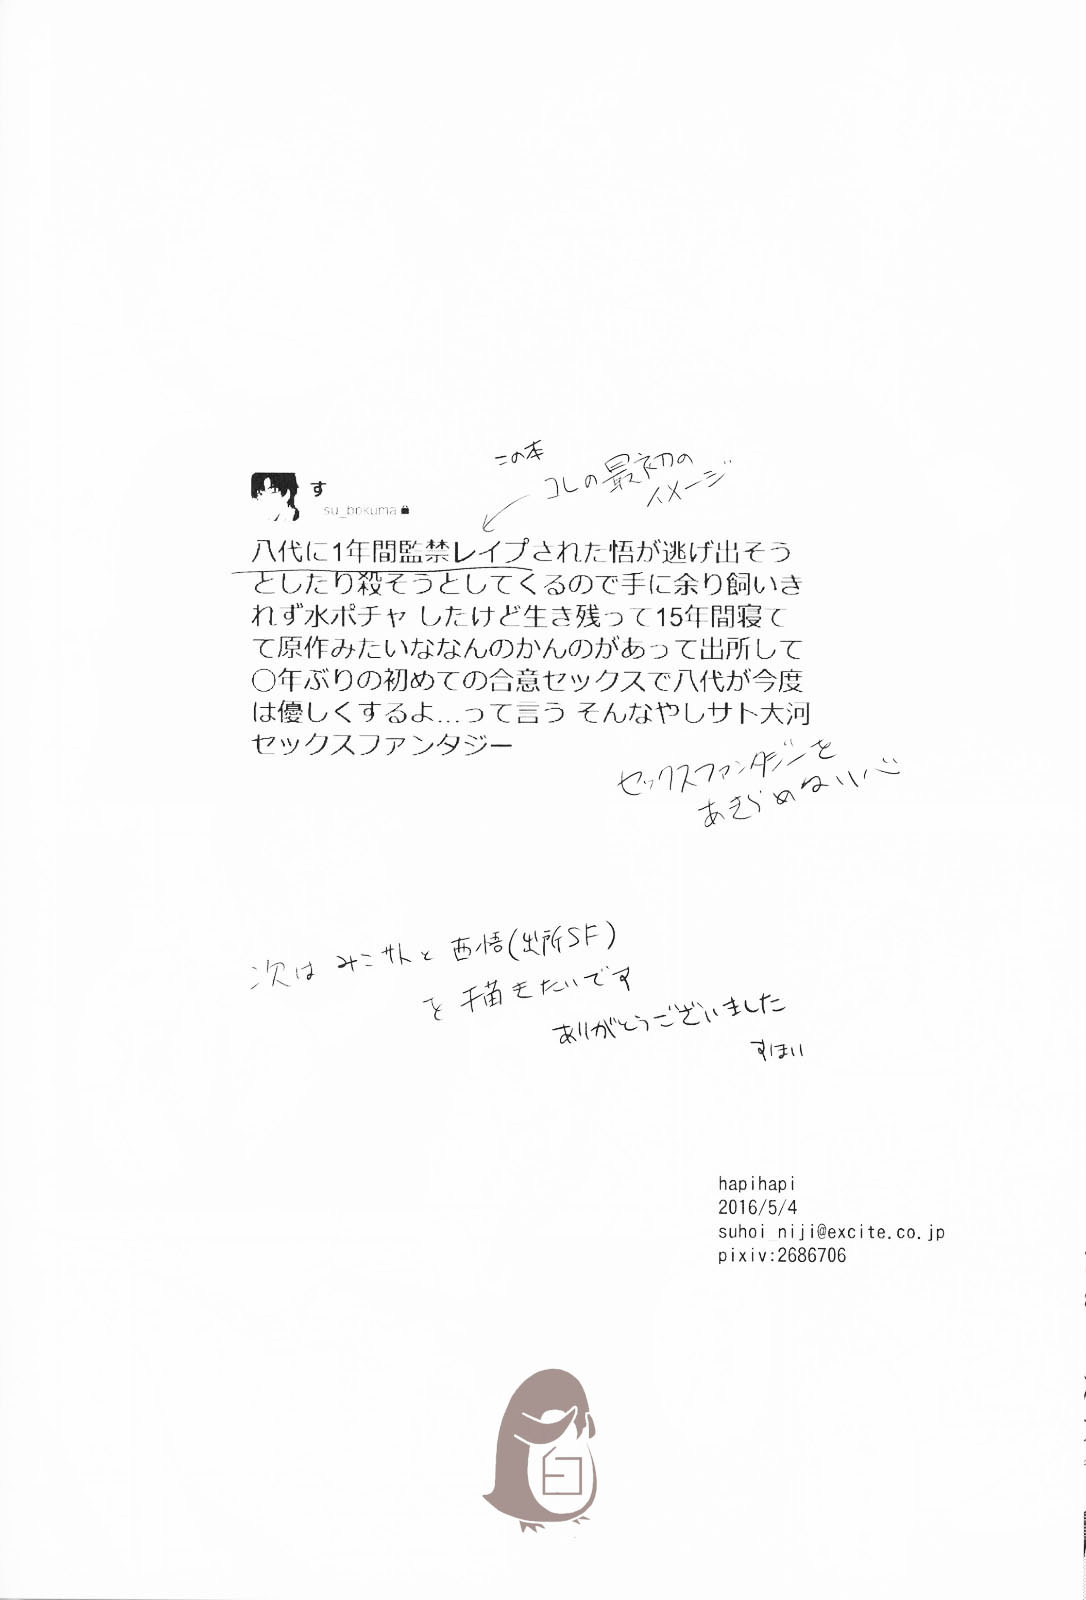 この本
コレの最初の
イメージ
す
su_bokuma
八代に1年間監禁レイプされた悟が逃げ出そう
としたり殺そうとしてくるので手に余り飼いき
れず水ポチャ したけど生き残って15年間寝て
て原作みたいななんのかんのがあって出所して
〇年ぶりの初めての合意セックスで八代が今度
は優しくするよ…って言う そんなやしサト大河
セックスファンタジー
セックスファンタジーを
あきらめない心
次は みこサトと 西悟(出所SF)
を描きたいです
ありがとうございました
すほい
hapihapi
2016/5/4
suhoi_niji@excite.co.jp
pixiv:2686706